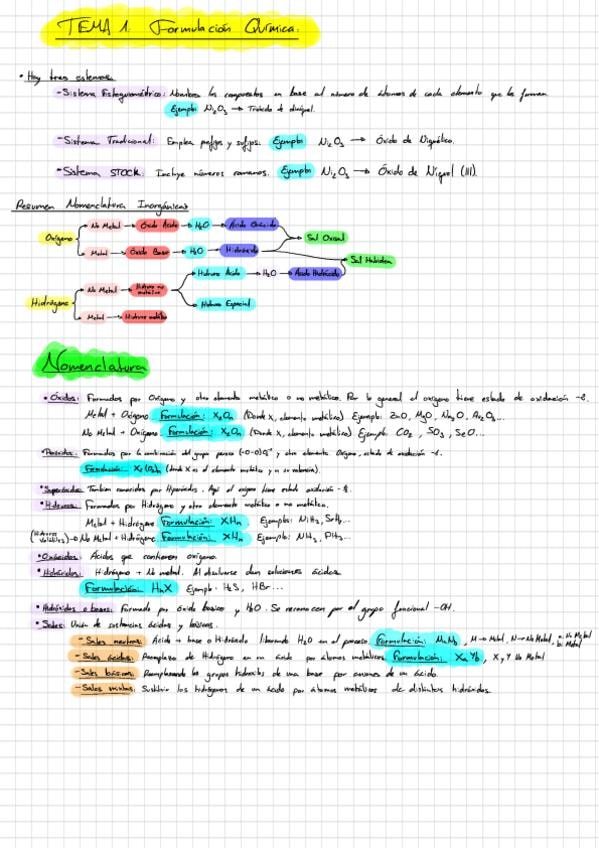 TEMA 1: Formulación Química.
• Hay tres sistemas
- Sistema Estequiométrico: Nombra los compuestos en base al número de átomos de cada elemento que lo forman.
Ejemplo Ni₂O₃ → Trióxido de diníquel.
- Sistema Tradicional: Emplea prefijos y sufijos. Ejemplo Ni₂O₃ → Óxido de Niquélico.
- Sistema STOCK: Incluye números romanos. Ejemplo Ni₂O₃ → Óxido de Níquel (III).
Resumen Nomenclatura Inorgánicas
No Metal → Óxido Ácido → H₂O → Ácido Oxácido
Oxígeno Sal Oxisal
Metal → Óxido Base → H₂O → Hidróxido
Sal Hidroidea
Hidruro Ácido → H₂O → Ácido Hidrácido
No Metal → Hidruro no metálico
Hidrógeno Hidruro Especial
Metal → Hidruro metálico
Nomenclatura
• Óxidos: Formados por Oxígeno y otro elemento metálico o no metálico. Por lo general el oxígeno tiene estado de oxidación -2.
Metal + Oxígeno Formulación: X₂Oₙ (Donde X, elemento metálico) Ejemplo: ZnO, MgO, Na₂O
No Metal + Oxígeno Formulación: X₂Oₙ (Donde X, elemento metálico) Ejemplo: CO₂, SO₃, SeO...
• Peróxidos: Formados por la combinación del grupo peroxo (-O-O-) y otro elemento. Oxígeno, estado de oxidación -1.
Formulación: X₂(O₂)ₙ (donde X es el elemento metálico y n su valencia).
• Superóxidos: También conocidos por Hiperóxidos. Aquí el oxígeno tiene estado oxidación
• Hidruros: Formados por Hidrógeno y otro elemento metálico o no metálico.
Metal + Hidrógeno Formulación: XHₙ Ejemplos: NiH₃
(Hidruros Volátiles) → No Metal + Hidrógeno Formulación: XHₙ Ejemplo: NH₃, PH₃...
• Oxácidos: Ácidos que contienen oxígeno.
• Hidrácidos: Hidrógeno + No metal. Al disolverse dan soluciones ácidas
Formulación: HₙX Ejemplo: H₂S, HBr...
• Hidróxidos o bases: Formado por óxido básico y H₂O. Se reconocen por el grupo funcional -OH.
• Sales: Unión de sustancias ácidas y básicas.
- Sales neutras: Ácido + base o Hidróxido liberando H₂O en el proceso. Formulación: M → Metal, N → No Metal,
- Sales ácidas: Reemplazo de Hidrógeno en un ácido por átomos metálicos. Formulación: Xₐ Yb, X, Y No Metal
- Sales básicas: Reemplazando los grupos hidróxilos de una base por aniones de un ácido.
- Sales mixtas: Sustituir los hidrógenos de un ácido por átomos metálicos de distintos hidróxidos.